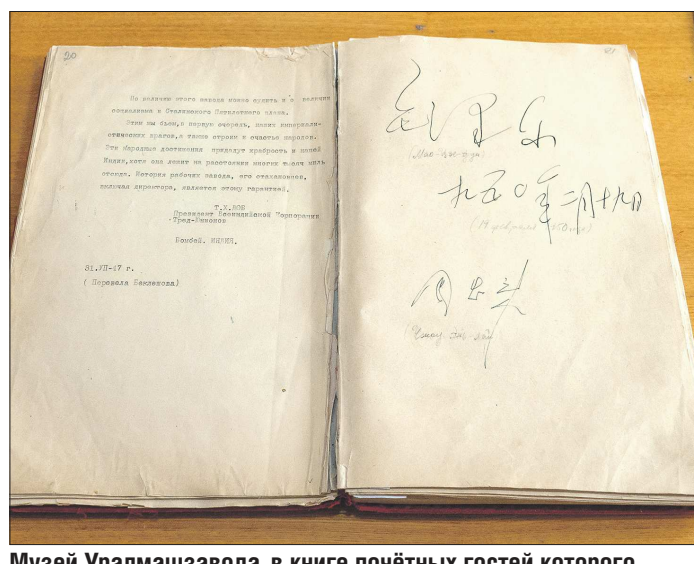 20
По наличию этого завода можно судить и о наличии
социализма и Сталинского Пятилетнего плана.
Этим вы бьете, в первую очередь, наших империали-
стических врагов, а также строите счастье народов.
Эти Народные достижения придадут храбрость и новой
Индии, хотя она лежит на расстоянии многих тысяч миль
отсюда. История рабочих завода, его стахановцев,
включая директора, является этому гарантией.
Президент Всеиндийской Корпорации
Тред-Юнионов
Бомбей. ИНДИЯ.
31.УП-47 г.
( Перевела Баклакова)
毛泽东
(Мао-цзе-дун)
一九五〇年二月十九日
(19 февраля 1950 г.)
周恩来
(Чжоу Энь-лай)
Музей Уралмашзавода, в книге почётных гостей которого